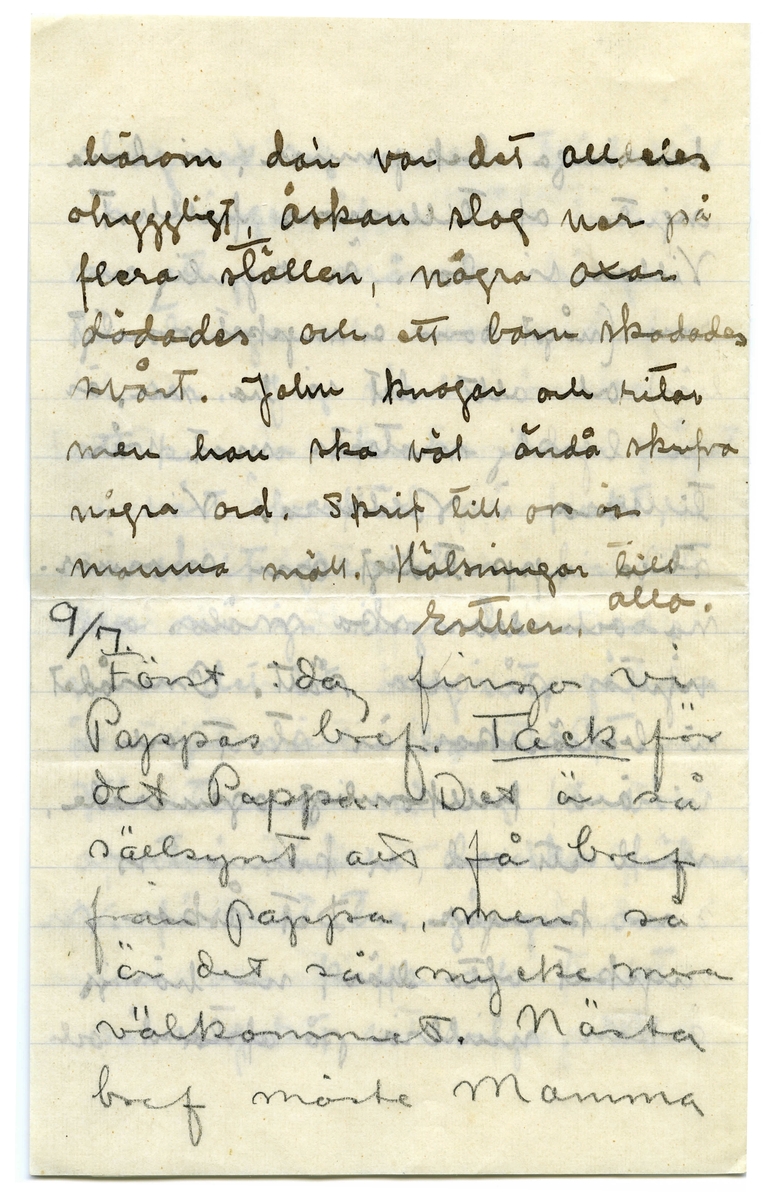 härom dan var det alldeles
ohyggligt, Åskan slog ner på
flera ställen, några oxar
dödades och ett barn skadades
svårt. John knogar och ritar
men han ska väl ändå skrifva
några ord. Skrif till oss
mamma snäll. Hälsningar till
alla.
Esther.
9/7.
Först idag fingo vi
Pappas bref. Tack för
det Pappa. Det är så
sällsynt att få bref
från Pappa, men så
är det så mycke mera
välkommet. Nästa
bref måste Mamma